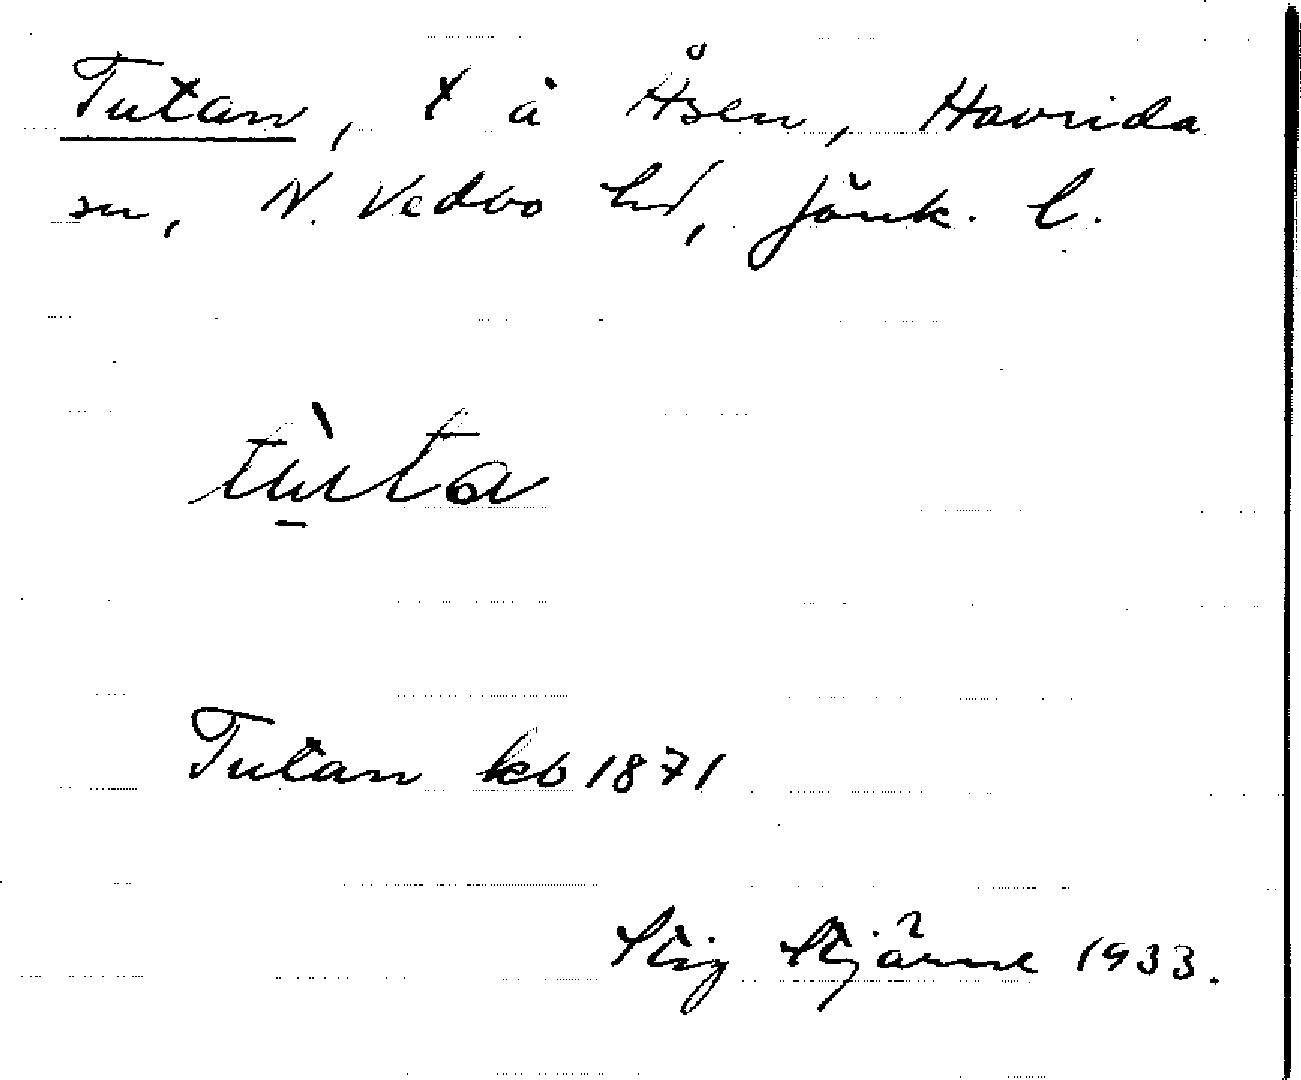 Tutan, t å Åsen, Haurida
sn, N. Vedbo hd, Jönk. l.
tùta
Tutan kb 1871
Stig Stjärne 1933.